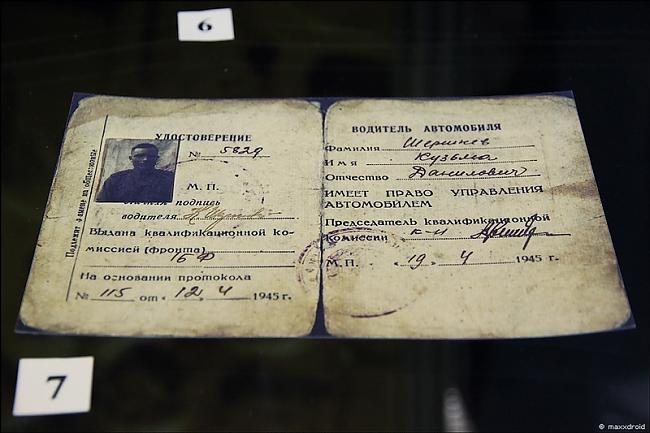 6
УДОСТОВЕРЕНИЕ
№ 5829
М. П.
подпись
водителя
Выдана квалификационной ко-
миссией (фронта)
1БФ
На основании протокола
№ 115 от „12„ 4 1945 г.
Подлежит обмену на общественные
ВОДИТЕЛЬ АВТОМОБИЛЯ
Фамилия
Имя Кузьма
Отчество Данилович
ИМЕЕТ ПРАВО УПРАВЛЕНИЯ
АВТОМОБИЛЕМ
Председатель квалификационной
комиссии к-н
М. П. „19„ 4 1945 г.
7
© maxxdroid